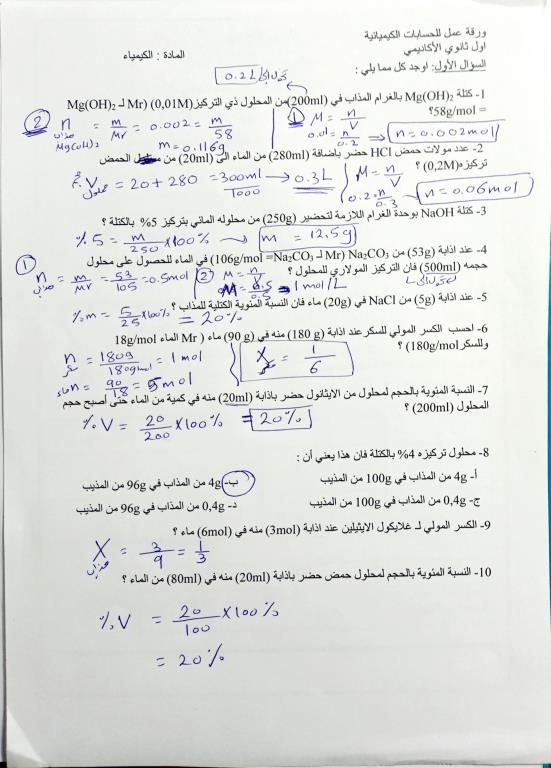 ورقة عمل للحسابات الكيميائية
اول ثانوي الأكاديمي
المادة : الكيمياء
السؤال الأول: اوجد كل مما يلي :
0.2L
1- كتلة Mg(OH)₂ بالغرام المذاب في (200ml) من المحلول ذي التركيز (0,01M) (Mr لـ Mg(OH)₂
= 58g/mol؟
① M = n/V
0.01 = n/0.2 ⇒ n = 0.002 mol
② n مذاب Mg(OH)₂ = m/Mr = 0.002 = m/58
m = 0.116g
2- عدد مولات حمض HCl حضر بإضافة (280ml) من الماء الى (20ml) من الحمض
تركيزه (0,2M) ؟
V محلول = 20 + 280 = 300ml/1000 → 0.3L
M = n/V
0.2 = n/0.3
n = 0.06mol
3- كتلة NaOH بوحدة الغرام اللازمة لتحضير (250g) من محلوله المائي بتركيز 5% بالكتلة ؟
%5 = m/250 × 100% → m = 12.5g
4- عند اذابة (53g) من Na₂CO₃ (Mr لـ Na₂CO₃= 106g/mol) في الماء للحصول على محلول
حجمه (500ml) فان التركيز المولاري للمحلول ؟
① n مذاب = m/Mr = 53/105 = 0.5mol
② M = n/V
M = 0.5/0.5 = 1 mol/L
5- عند اذابة (5g) من NaCl في (20g) ماء فان النسبة المئوية الكتلية للمذاب ؟
%m = 5/25 × 100% = 20%
6- احسب الكسر المولي للسكر عند اذابة (180 g) منه في (90 g) ماء ( Mr الماء 18g/mol
وللسكر 180g/mol) ؟
n سكر = 180g/180g/mol = 1 mol
n ماء = 90/18 = 5mol
X سكر = 1/6
7- النسبة المئوية بالحجم لمحلول من الايثانول حضر باذابة (20ml) منه في كمية من الماء حتى أصبح حجم
المحلول (200ml) ؟
%V = 20/200 × 100% = 20%
8- محلول تركيزه 4% بالكتلة فان هذا يعني أن :
أ- 4g من المذاب في 100g من المذيب
ب- 4g من المذاب في 96g من المذيب
ج- 0,4g من المذاب في 100g من المذيب
د- 0,4g من المذاب في 96g من المذيب
9- الكسر المولي لـ غلايكول الايثيلين عند اذابة (3mol) منه في (6mol) ماء ؟
X مذاب = 3/9 = 1/3
10- النسبة المئوية بالحجم لمحلول حمض حضر باذابة (20ml) منه في (80ml) من الماء ؟
%V = 20/100 × 100%
= 20%